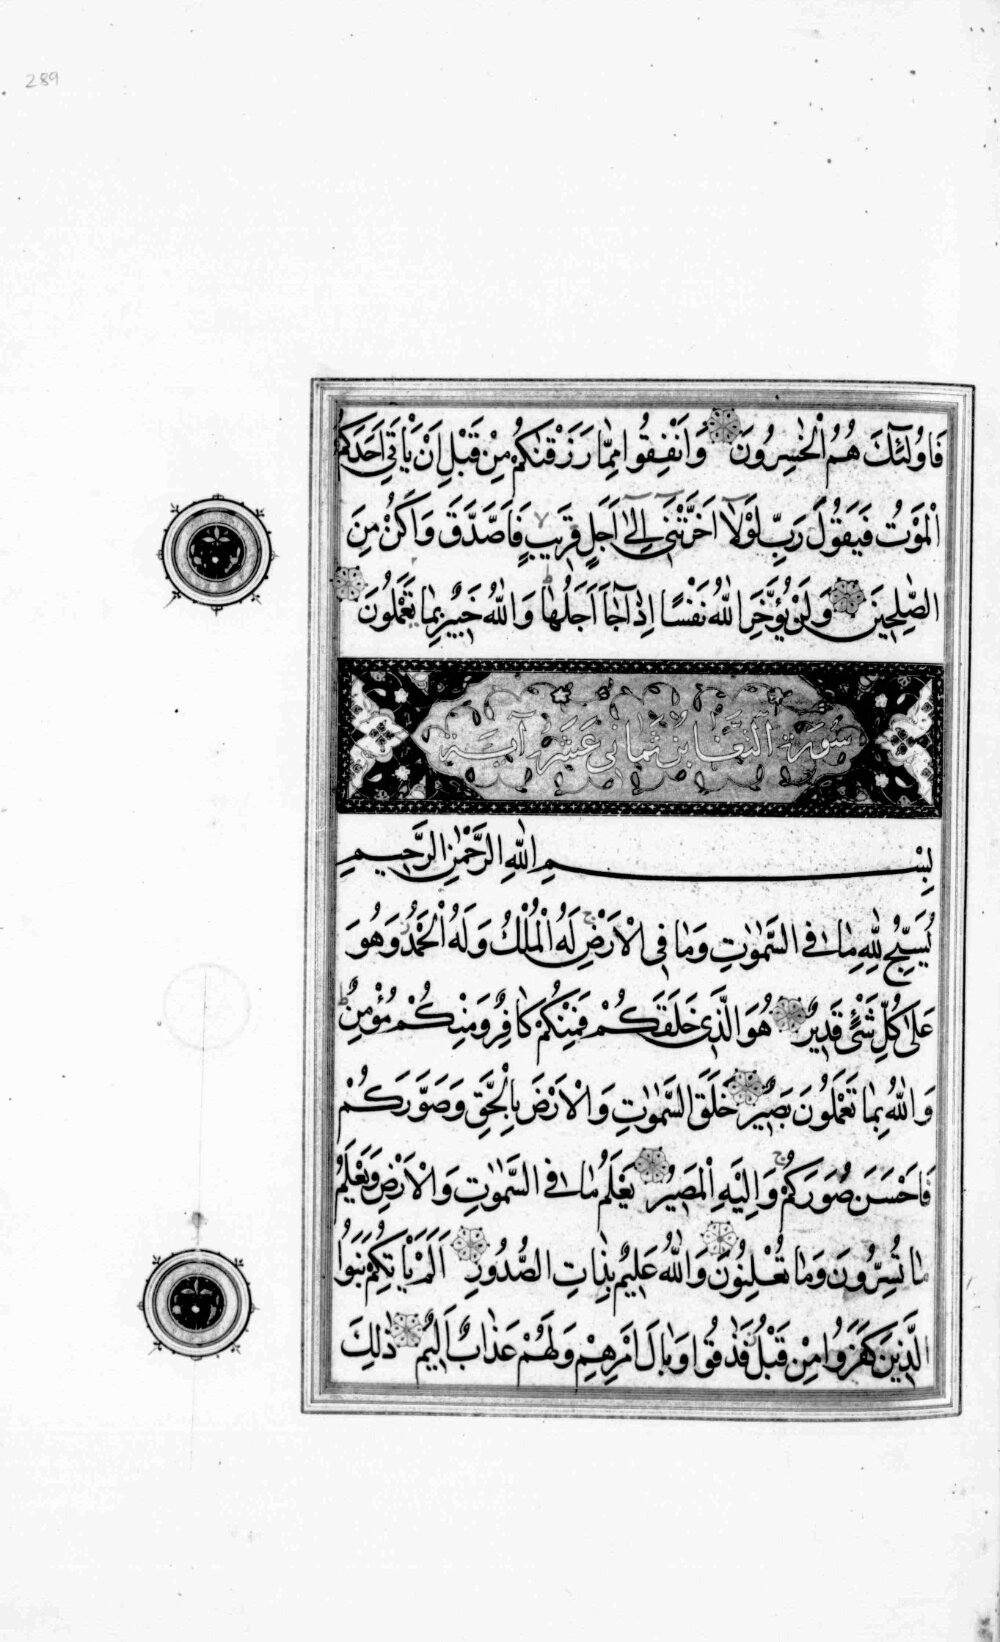 289
فَاُولٰٓئِكَ هُمُ الْخٰسِرُونَ وَاَنْفِقُوا مِمَّا رَزَقْنٰكُمْ مِنْ قَبْلِ اَنْ يَأْتِيَ اَحَدَكُمُ
الْمَوْتُ فَيَقُولَ رَبِّ لَوْلَآ اَخَّرْتَنِيٓ اِلٰٓى اَجَلٍ قَرِيبٍ فَاَصَّدَّقَ وَاَكُنْ مِنَ
الصّٰلِحِينَ وَلَنْ يُؤَخِّرَ اللّٰهُ نَفْسًا اِذَا جَآءَ اَجَلُهَا وَاللّٰهُ خَبِيرٌ بِمَا تَعْمَلُونَ
سُورَة التَّغَابُن ثمَانِي عَشَرَ آيَة
بِسْمِ اللّٰهِ الرَّحْمٰنِ الرَّحِيمِ
يُسَبِّحُ لِلّٰهِ مَا فِي السَّمٰوٰتِ وَمَا فِي الْاَرْضِ لَهُ الْمُلْكُ وَلَهُ الْحَمْدُ وَهُوَ
عَلٰى كُلِّ شَيْءٍ قَدِيرٌ هُوَ الَّذِي خَلَقَكُمْ فَمِنْكُمْ كَافِرٌ وَمِنْكُمْ مُؤْمِنٌ
وَاللّٰهُ بِمَا تَعْمَلُونَ بَصِيرٌ خَلَقَ السَّمٰوٰتِ وَالْاَرْضَ بِالْحَقِّ وَصَوَّرَكُمْ
فَاَحْسَنَ صُوَرَكُمْ وَاِلَيْهِ الْمَصِيرُ يَعْلَمُ مَا فِي السَّمٰوٰتِ وَالْاَرْضِ وَيَعْلَمُ
مَا تُسِرُّونَ وَمَا تُعْلِنُونَ وَاللّٰهُ عَلِيمٌ بِذَاتِ الصُّدُورِ اَلَمْ يَأْتِكُمْ نَبَؤُا
الَّذِينَ كَفَرُوا مِنْ قَبْلُ فَذَاقُوا وَبَالَ اَمْرِهِمْ وَلَهُمْ عَذَابٌ اَلِيمٌ ذٰلِكَ